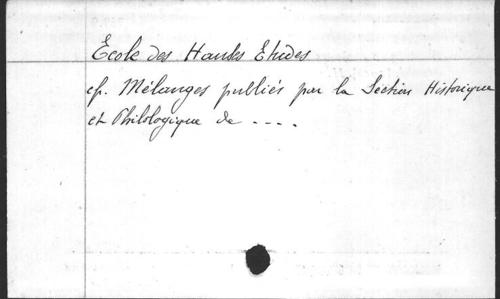 École des Hautes Études
cf. Mélanges publiés par la Section Historique
et Philologique de ----.